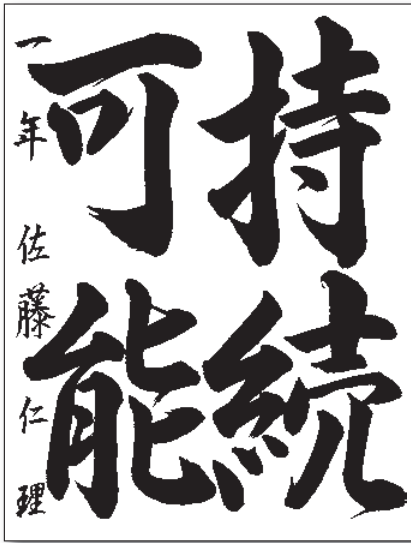 持続
可能
一年 佐藤仁理